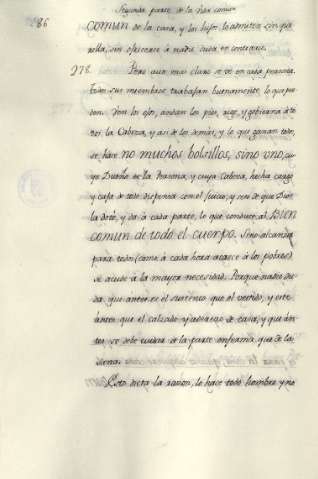 Segunda parte de la
86 comun de la casa, y los hijos lo admiten sin par
278. Pero aun mas claro se ve en cada persona.
Todos sus miembros trabajan buenamente lo que pue
den. Ven los ojos, andan los pies, oye, y gobierna á to
dos la Cabeza, y asi de los demás, y lo que ganan todos
se hace no muchos bolsillos, sino uno, cu
yo Dueño es la Persona, y cuya Cabeza, hecha cargo
y casa de todo dispensa con el juicio, y seso de que Dios
la dotó, y da á cada parte, lo que conduce al Buen
comun de todo el cuerpo. Si no alcanza
para todo (como á cada hora acaece á los pobres)
se acude á la mayor necesidad. Porque nadie du
da, que antes es el sustento que el vestido, y este
antes que el calzado y aderezo de casa, y que an
tes se debe cuidar de la parte enferma, que de la
Esto dicta la razon, lo hace todo hombre y no